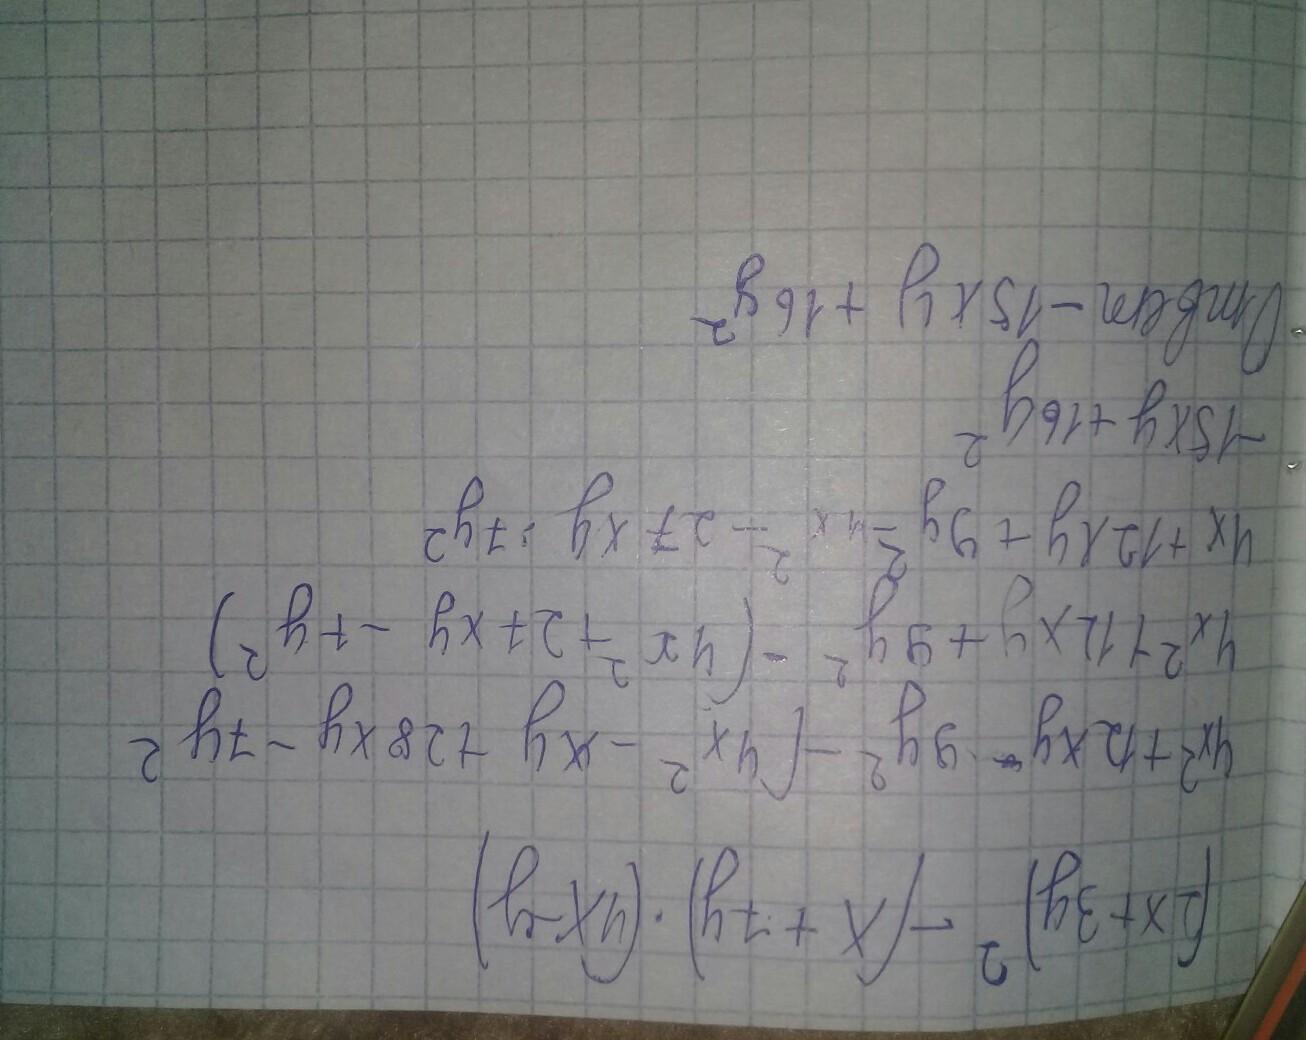 (2x+3y)² - (x+7y)·(4x-y)
4x²+12xy - 9y² - (4x² - xy +28xy -7y²
4x²+12xy+9y² - (4x²+27xy -7y²)
4x+12xy+9y² -4x² - 27xy · 7y²
-15xy+16y²
Ответ -15xy +16y²